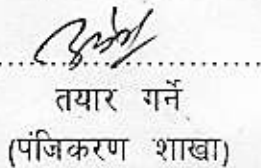 तयार गर्ने
(पंजिकरण शाखा)